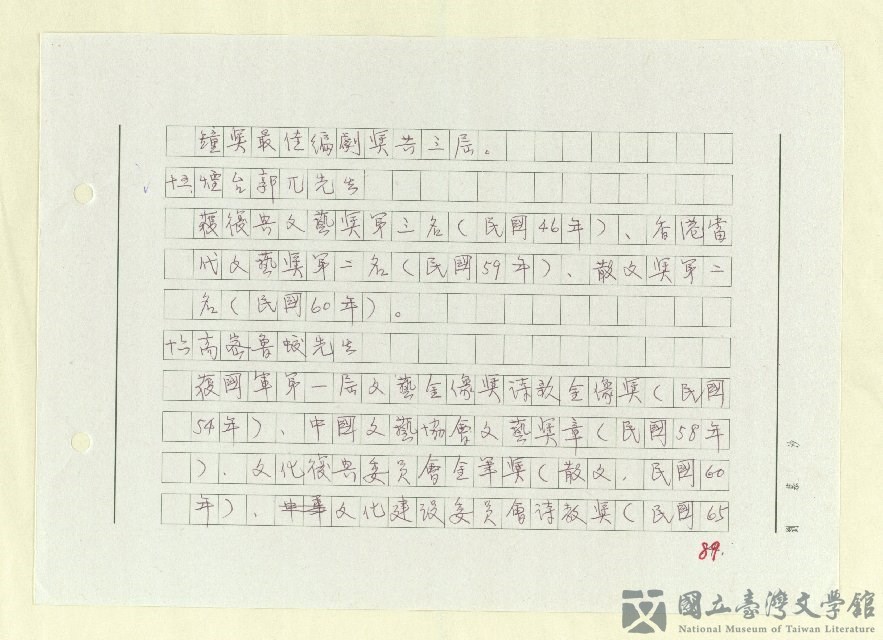 鐘奖最佳編劇奖共三屆。
十五、煙台郭兀先生
獲復兴文藝奖第三名(民國46年)、香港當
代文藝奖第二名(民國59年)、散文奖第二
名(民國60年)。
十六高密魯蛟先生
獲國軍第一屆文藝金像奖诗歌金像奖(民國
54年)、中國文藝協會文藝奖章(民國58年
)、文化復兴委员會金筆奖(散文、民國60
年)、文化建设委员會诗教奖(民國65
89.
國立臺灣文學館
National Museum of Taiwan Literature